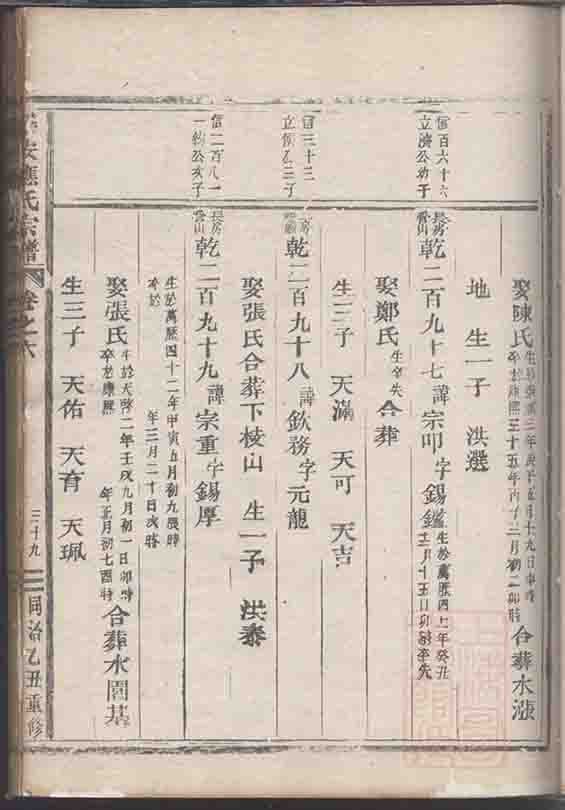 娶陳氏 合葬水漲
地 生一子 洪選
信百六十六
立濟公幼子
長房
乾二百九十七 諱宗叩 字錫鑑 生於萬曆四十一年癸丑
十二月十五日卯時卒失
娶鄭氏 生卒失 合葬
生三子 天滿 天可 天吉
信三十三
乾二百九十八 諱欽務 字元龍
娶張氏合葬下棱山 生一子 洪泰
信二百八一
長房
乾二百九十九 諱宗重 字錫厚
生於萬曆四十二年甲寅五月初九辰時
卒於 年三月二十日亥時
娶張氏 生於天啓二年壬戌九月初一日卯時
卒於康熙 年五月初七酉時 合葬水圓基
生三子 天佑 天育 天珮
應氏宗譜 卷之六 三十九 同治乙丑重修